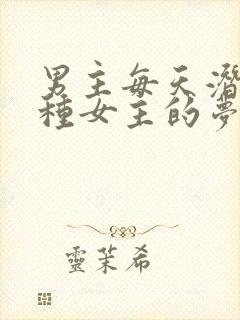 男主每天潛
種女主的夢
靈茉希